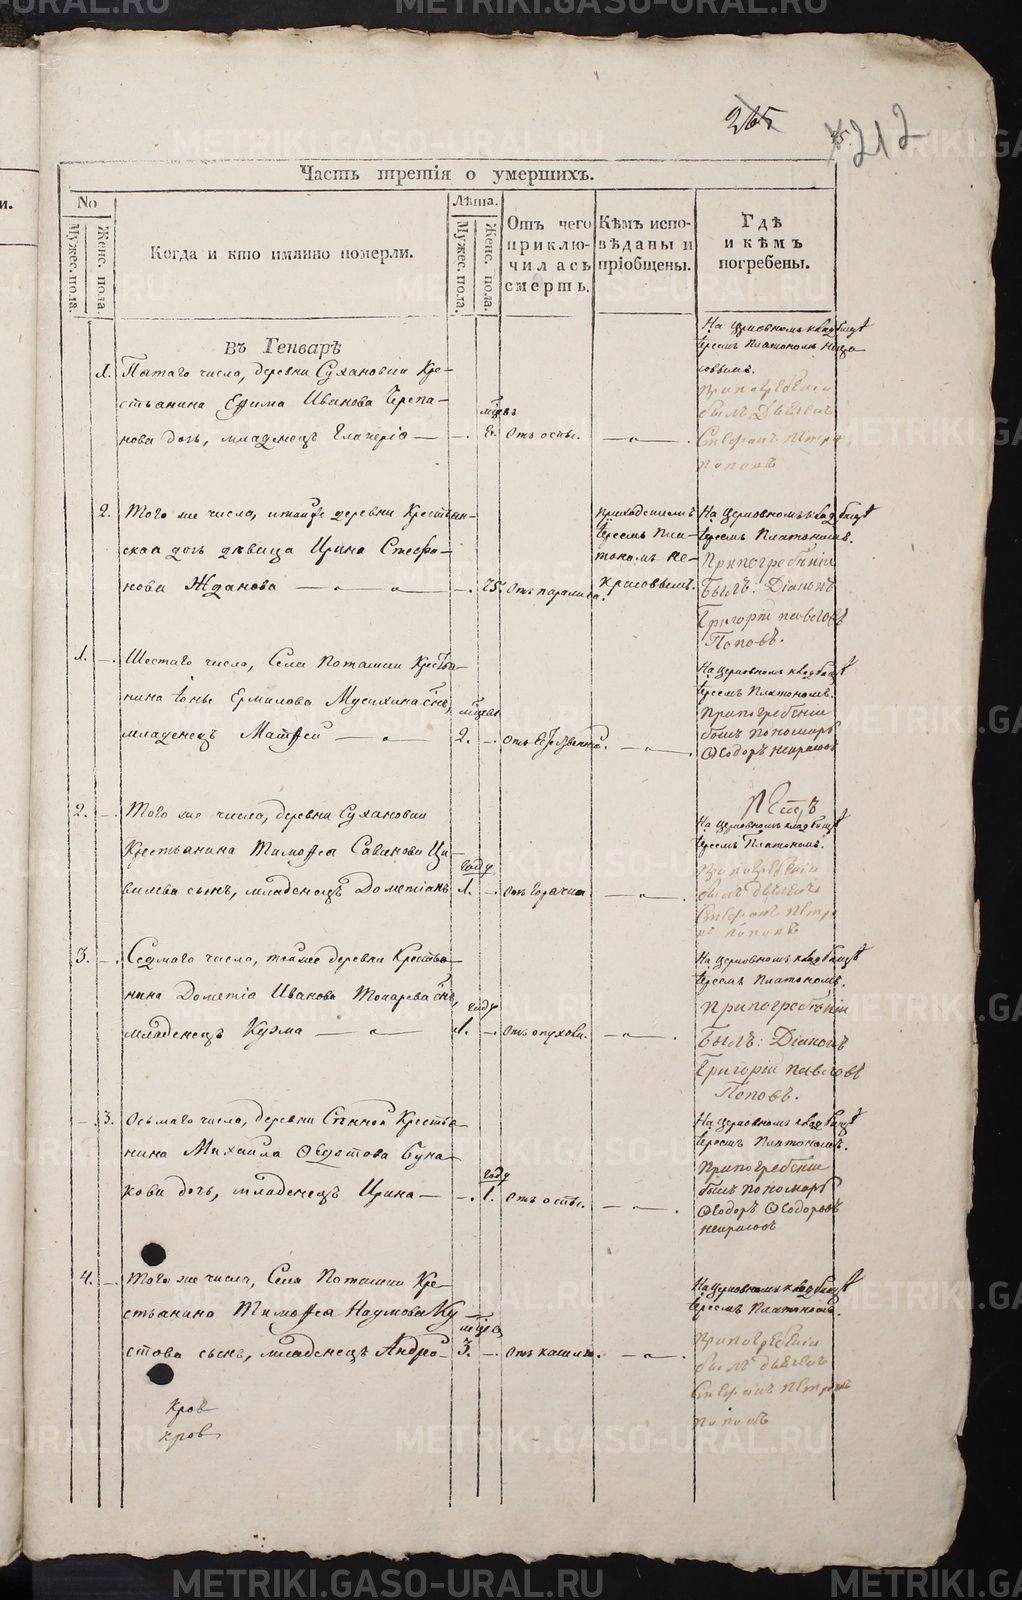 265
212
Часть третія о умершихъ.
No
Мужес. пола.
Женс. пола.
Когда и кто имянно померли.
Лѣта.
Мужес. пола.
Женс. пола.
Отъ чего приклю-
чилась
смерть.
Кѣмъ испо-
вѣданы и
пріобщены.
Гдѣ
и кѣмъ
погребены.
Въ Генварѣ
1. Пятаго число, деревни Сухановки Кре-
стьянина Ефима Иванова Черепа-
нова дочь, младенецъ Гликерія — -. 8. отъ оспы.
На церковномъ кладбищѣ
Іереемъ Платономъ Некра-
совымъ.
При погребеніи
былъ Дьячекъ
Стефанъ Петро
Поповъ
2. Того же числа, и тойже деревни крестьян-
ская дочь дѣвица Ирина Стефа-
нова Жданова — -. 75. отъ паралича.
приходскимъ
Іереемъ Пла-
тономъ Не-
красовымъ.
На церковномъ кладбищѣ
Іереемъ Платономъ.
При погребѣніи
былъ: Діаконъ
Григорій павловъ
Поповъ.
1. -. Шестаго число, Села Поташки крестья-
нина Іоны Ермилова Мусихина сынъ,
младенецъ Матѳей — 2. -.
На церковномъ кладбищѣ
Іереемъ Платономъ.
При погребеніи
былъ пономарь
Ѳеодоръ некрасовъ
2. -. Того же число, деревни Сухановки
Крестьянина Тимоѳея Савинова
сынъ, младенецъ Дометіанъ
году
1. -. отъ горячки
На церковномъ кладбищѣ
Іереемъ Платономъ.
При погребеніи
былъ дьячекъ
Стефанъ Петро
поповъ
3. -. Седмаго число, тойже деревни Крестья-
нина Дометія Иванова Токарева сынъ,
младенецъ Кузма —
году
1. -. отъ опухоли.
На церковномъ кладбищѣ
Іереемъ Платономъ.
При погребѣніи
Былъ: Діаконъ
Григорій павловъ
Поповъ.
-. 3. Осьмаго число, деревни Сѣнной Крестья-
нина Михаила Ѳедотова Буна-
кова дочь, младенецъ Ирина —
году
-. 1. отъ оспы.
На церковномъ кладбищѣ
Іереемъ Платономъ.
При погребеніи
былъ пономарь
Ѳеодоръ Ѳеодоровъ
некрасовъ
4. -. Того же числа, Села Поташки Кре-
стьянина Тимоѳея Наумова Ку-
стова сынъ, младенецъ Андрей
3. -. отъ кашлю.
На церковномъ кладбищѣ
Іереемъ Платономъ.
При погребеніи
былъ дьячекъ
Стефанъ Петровъ
поповъ
кров
кров
METRIKI.GASO-URAL.RU